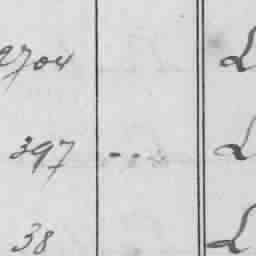 2704 L
397 - - - L
38 L